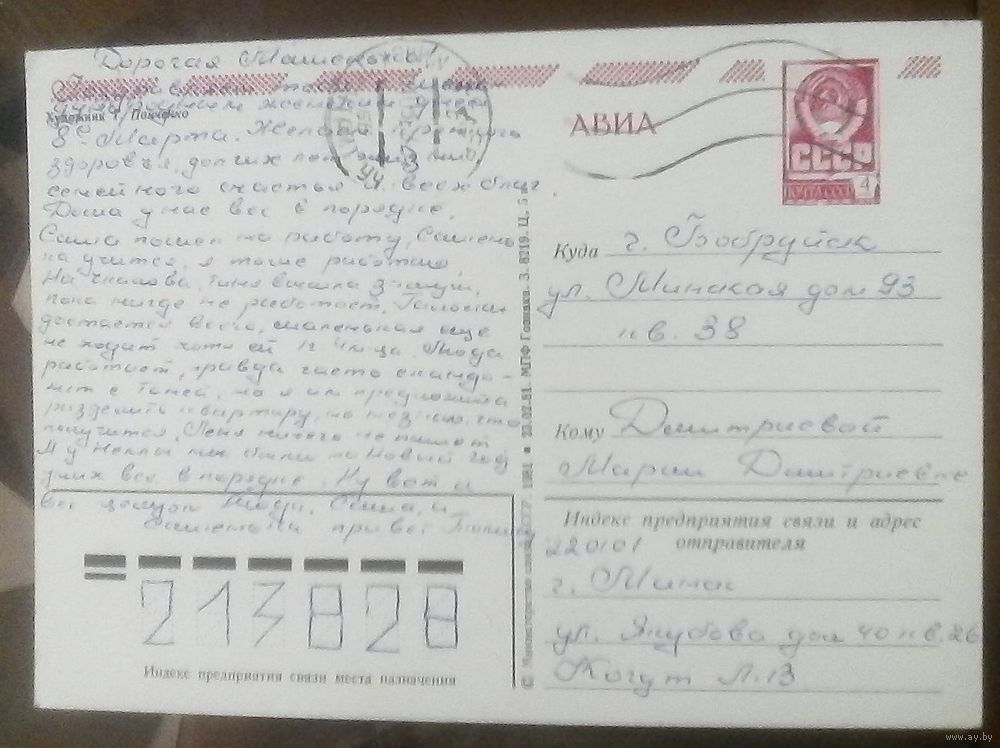 Дорогая Машенька!
Поздравляем тебя с
женским днем
Художник Г. Панченко
8ое Марта. Желаем крепкого
здоровья, долгих лет жизни
семейного счастья и всех благ.
Дома у нас все в порядке.
Саша пошел на работу, Сашень
ка учится, я тоже работаю.
Таня вышла замуж,
пока нигде не работает.
достается всего, маленькая еще
не ходит хотя ей 1 г.
работает, правда часто сканда-
лит с Таней, но я им предложила
разделить квартиру, но не знаю, что
получится. Лёня ничего не пишет
А у Неллы мы были на Новый год
у них все в порядке. Ну вот и
все целуем Люди, Саша, и
Сашенька привет
АВИА
СССР
ПОЧТА СССР 4
Куда г. Бобруйск
ул. Минская дом 93
кв. 38
Кому Дмитриевой
Марии Дмитриевне
Индекс предприятия связи и адрес
отправителя
220101
г. Минск
ул. Якубова дом 40 кв. 26
Когут Л.В
© Министерство связи СССР. 1981 23.02.81. МПФ Гознака. З. 8219. Ц. 5 к.
213828
Индекс предприятия связи места назначения
www.ay.by